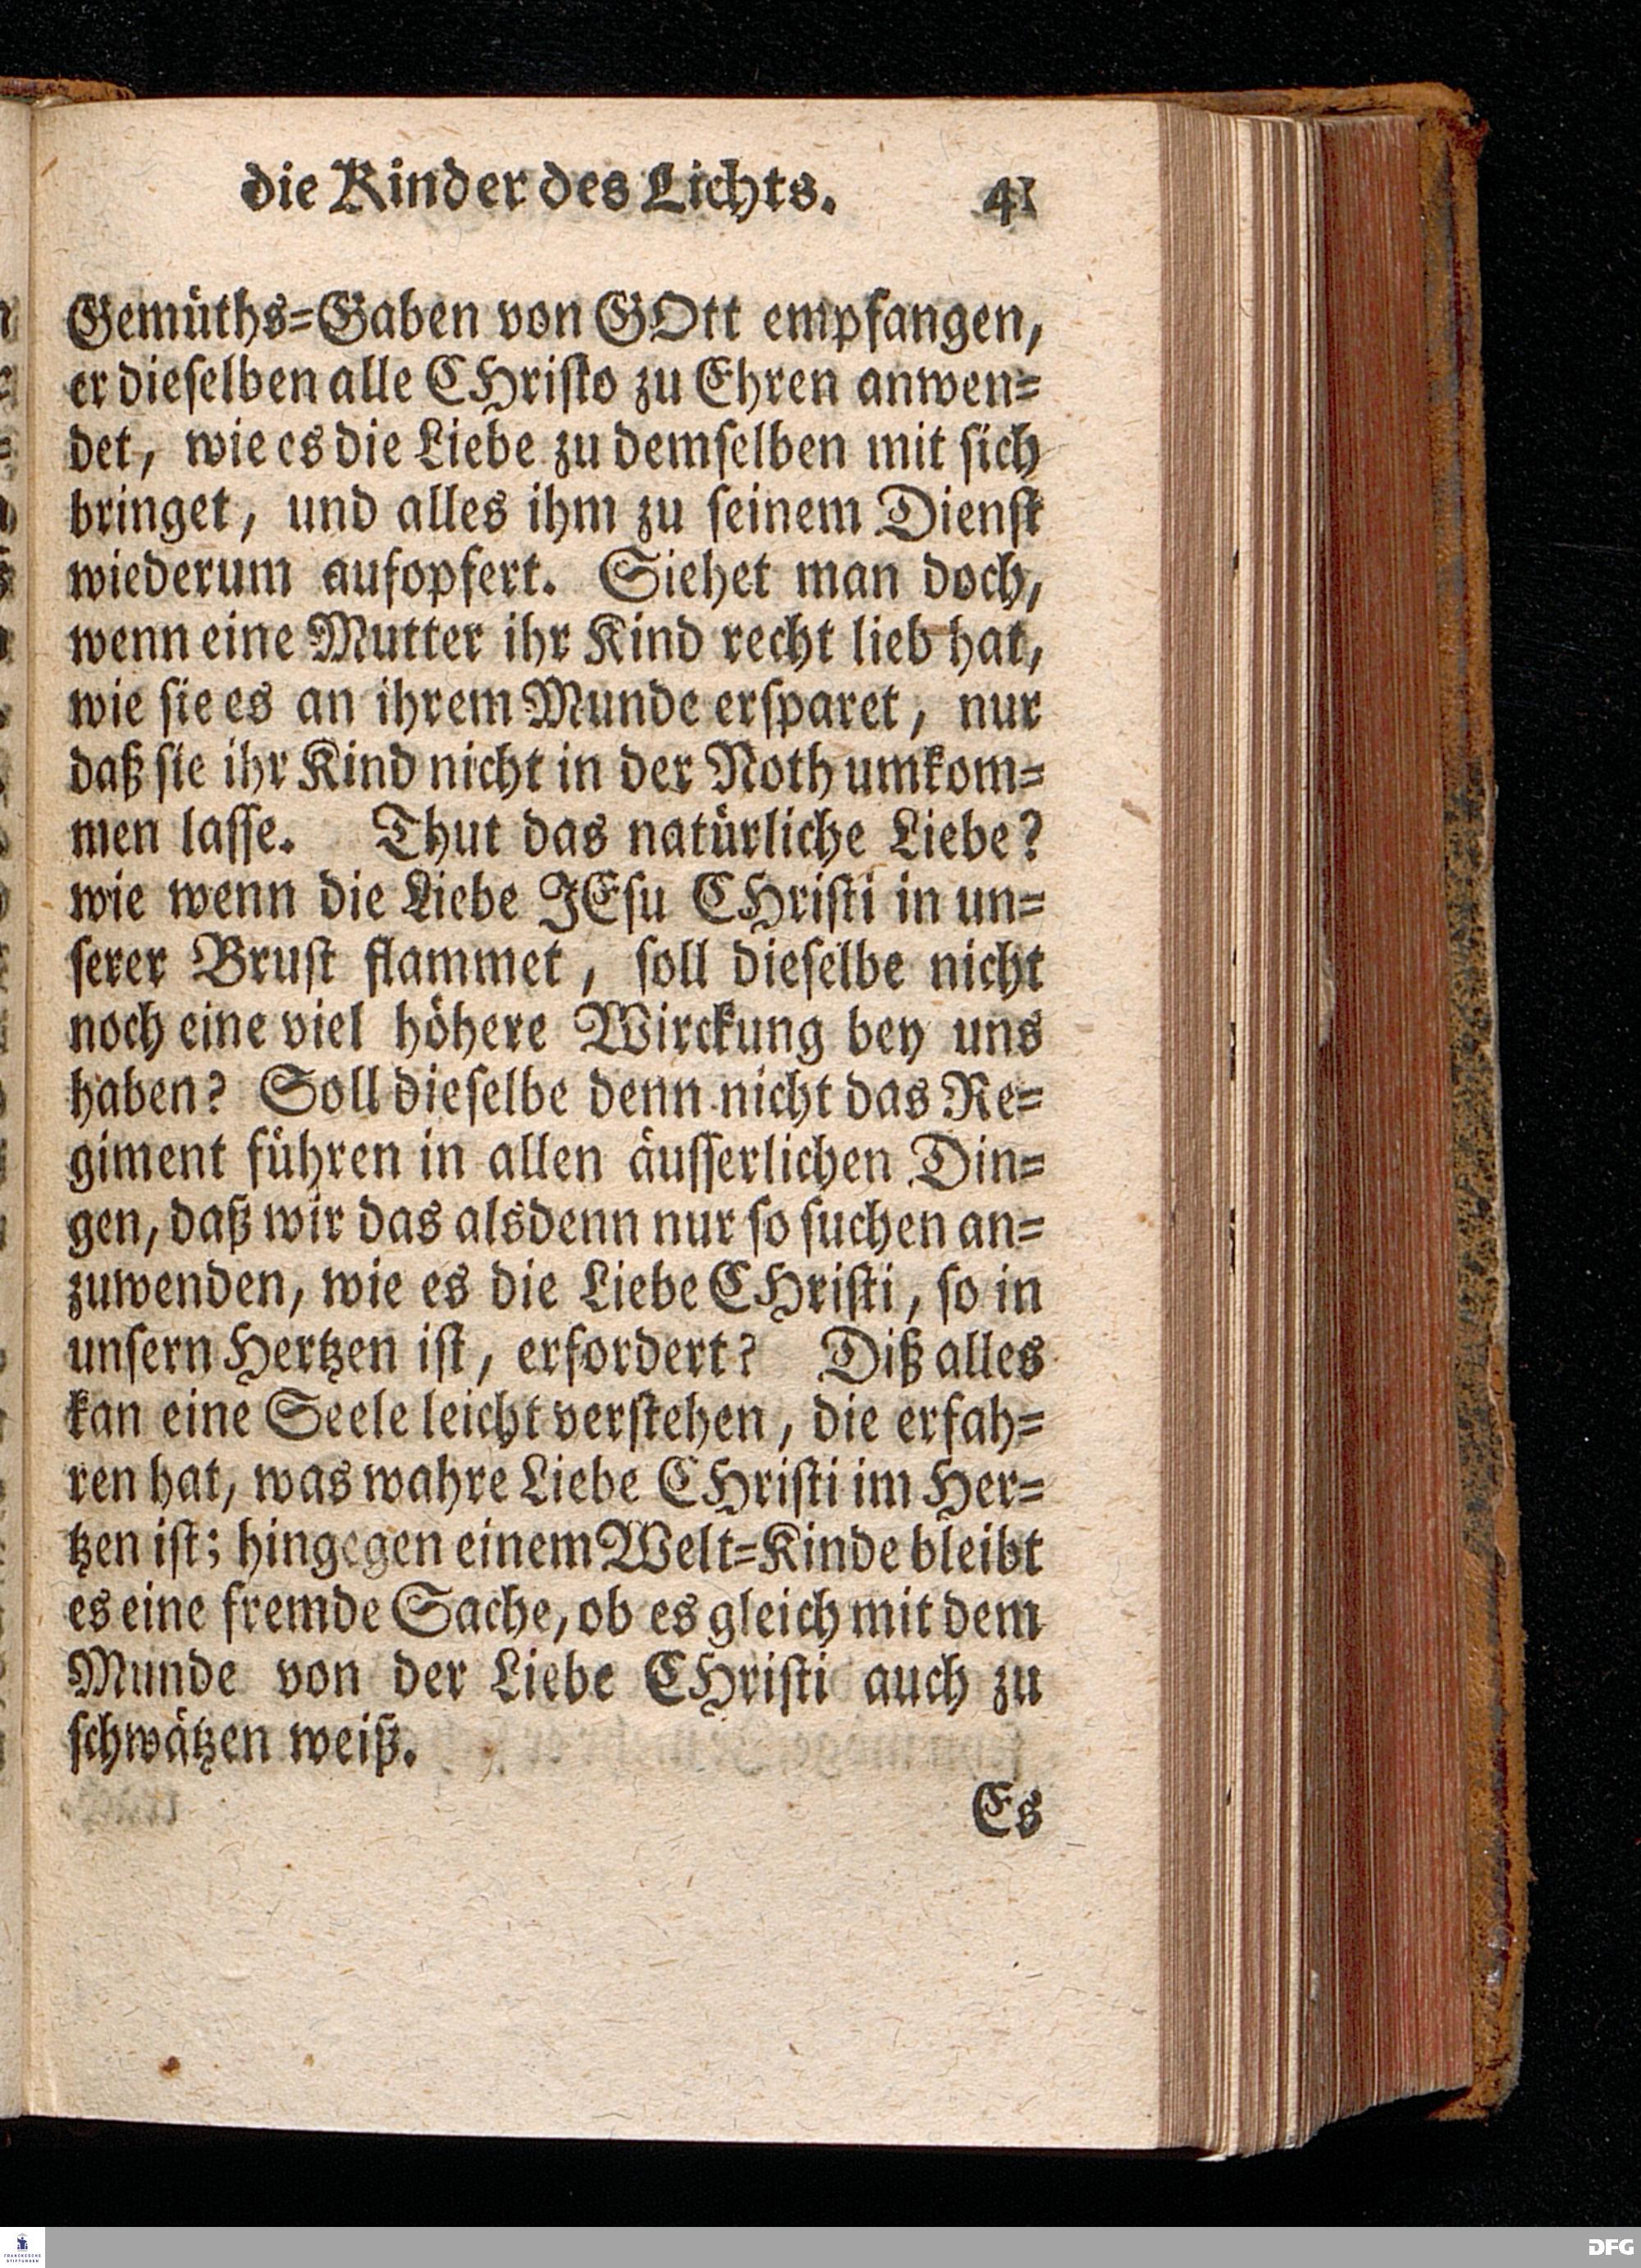 die Kinder des Lichts. 41
Gemüths=Gaben von GOtt empfangen,
er dieſelben alle CHriſto zu Ehren anwen=
det, wie es die Liebe zu demſelben mit ſich
bringet, und alles ihm zu ſeinem Dienſt
wiederum aufopfert. Siehet man doch,
wenn eine Mutter ihr Kind recht lieb hat,
wie ſie es an ihrem Munde erſparet, nur
daß ſie ihr Kind nicht in der Noth umkom=
men laſſe. Thut das natürliche Liebe?
wie wenn die Liebe JEſu CHriſti in un=
ſerer Bruſt flammet, ſoll dieſelbe nicht
noch eine viel höhere Wirckung bey uns
haben? Soll dieſelbe denn nicht das Re=
giment führen in allen äuſſerlichen Din=
gen, daß wir das alsdenn nur ſo ſuchen an=
zuwenden, wie es die Liebe CHriſti, ſo in
unſern Hertzen iſt, erfordert? Diß alles
kan eine Seele leicht verſtehen, die erfah=
ren hat, was wahre Liebe CHriſti im Her=
tzen iſt; hingegen einem Welt=Kinde bleibt
es eine fremde Sache, ob es gleich mit dem
Munde von der Liebe CHriſti auch zu
ſchwätzen weiß.
Es
FRANCKESCHE
STIFTUNGEN
DFG